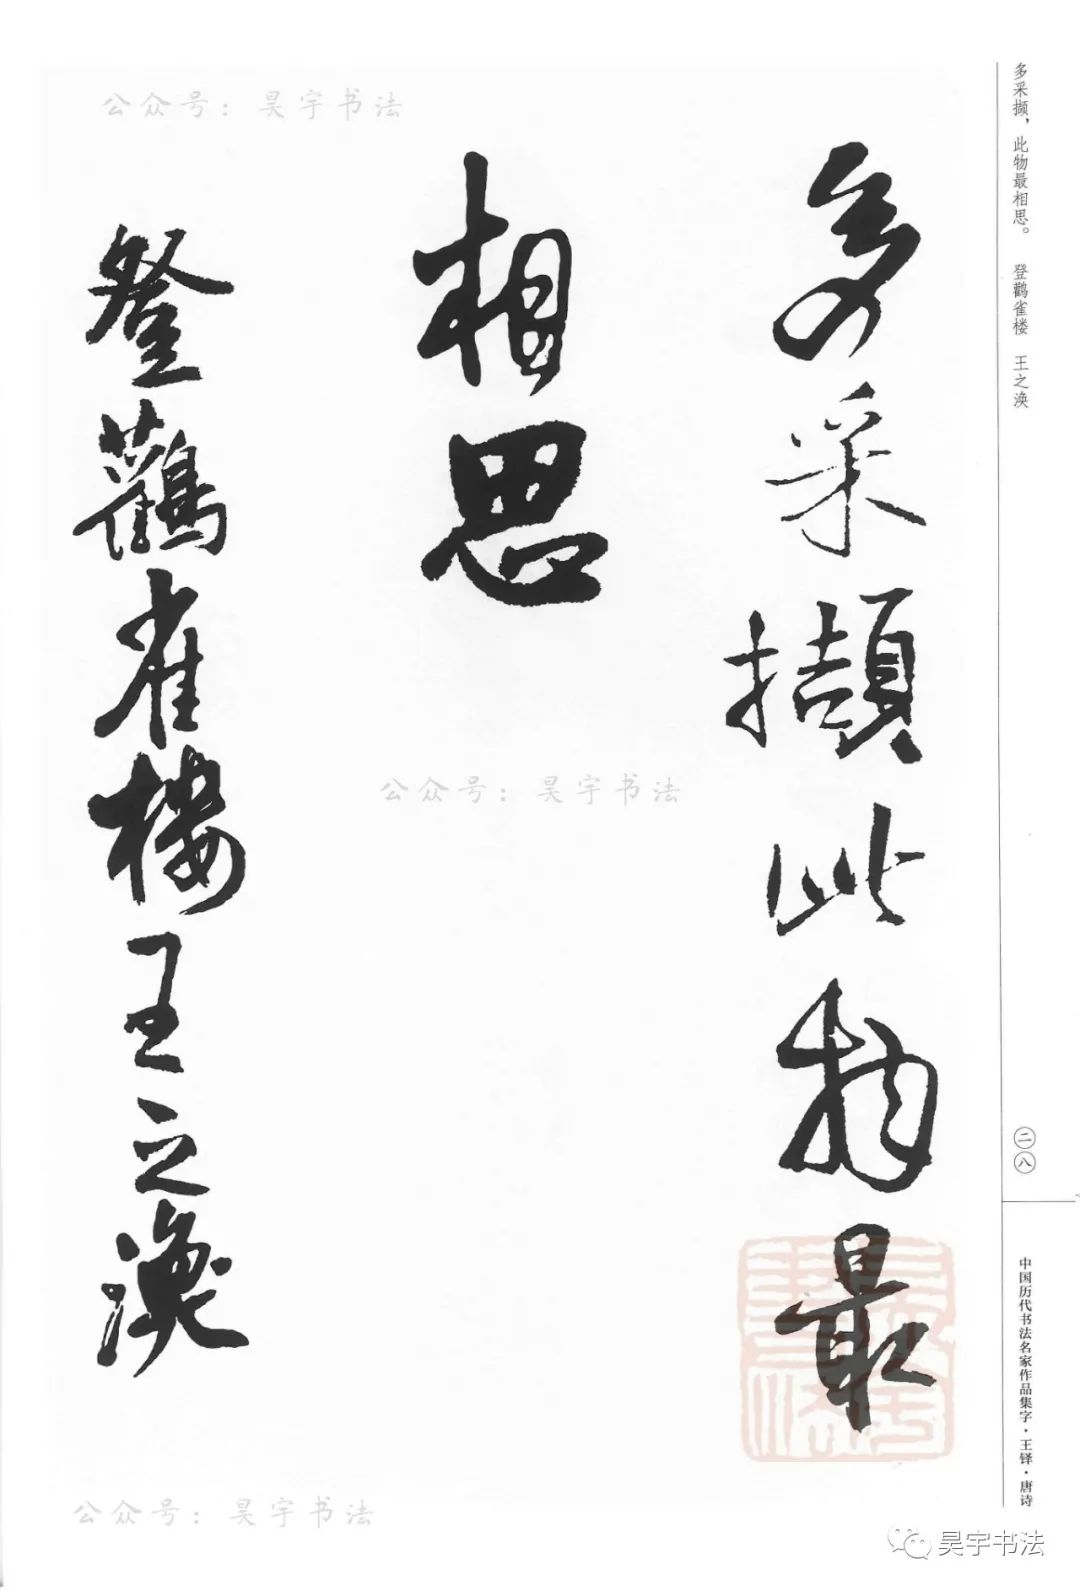 多采撷，此物最相思。　登鹳雀楼　王之涣
多采擷此物最
相思
登鸛雀樓王之渙
二八
中国历代书法名家作品集字·王铎·唐诗
公众号：昊宇书法
公众号：昊宇书法
公众号：昊宇书法
昊宇书法